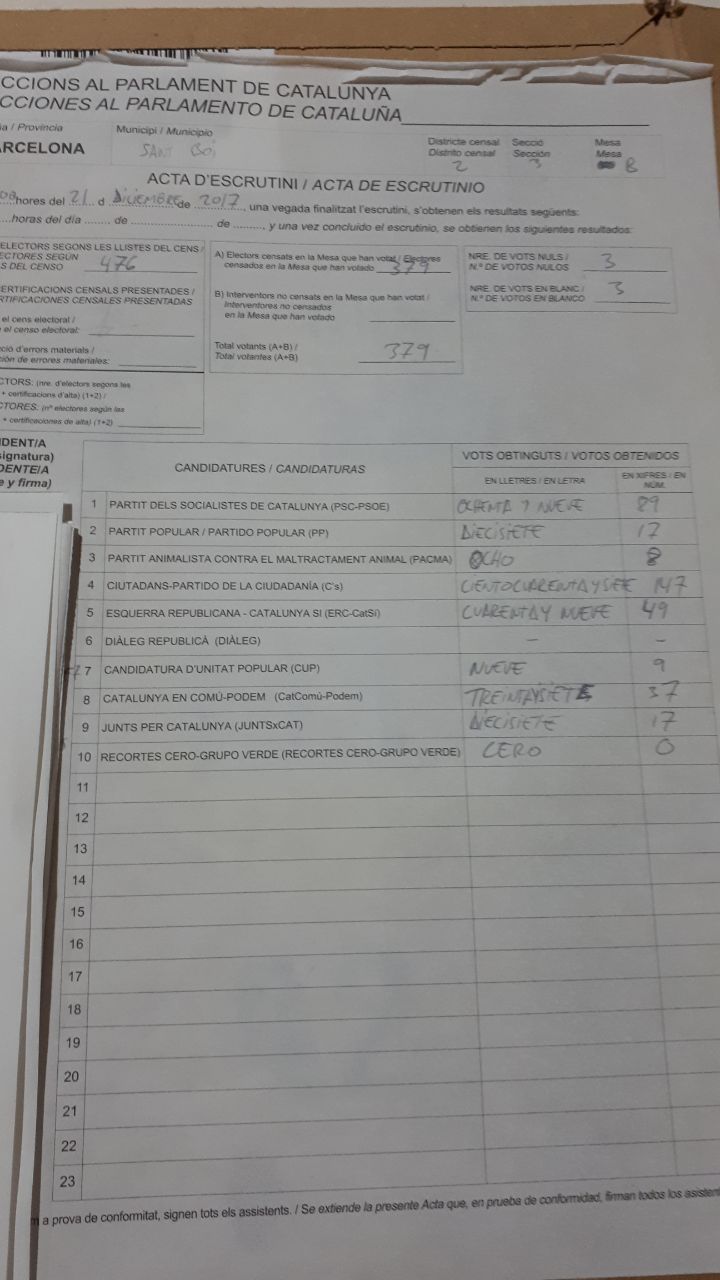 CCIONS AL PARLAMENT DE CATALUNYA
CCIONES AL PARLAMENTO DE CATALUÑA
a / Provincia
Municipi / Municipio
Districte censal
Distrito censal
Secció
Sección
Mesa
Mesa
ARCELONA
SANT BOI
2
3
B
ACTA D'ESCRUTINI / ACTA DE ESCRUTINIO
hores del 21 d DICIEMBRE de 2017, una vegada finalitzat l'escrutini, s'obtenen els resultats següents:
...horas del día ........ de ........................ de .........., y una vez concluido el escrutinio, se obtienen los siguientes resultados:
ELECTORS SEGONS LES LLISTES DEL CENS /
ECTORES SEGÚN
S DEL CENSO 476
CERTIFICACIONS CENSALS PRESENTADES /
RTIFICACIONES CENSALES PRESENTADAS
el cens electoral /
el censo electoral:
ció d'errors materials /
ción de errores materiales:
CTORS: (nre. d'electors segons les
+ certificacions d'alta) (1+2) /
CTORES: (nº electores según las
+ certificaciones de alta) (1+2)
A) Electors censats en la Mesa que han votat / Electores
censados en la Mesa que han votado 379
B) Interventors no censats en la Mesa que han votat /
Interventores no censados
en la Mesa que han votado
Total votants (A+B) /
Total votantes (A+B) 379
NRE. DE VOTS NULS /
N.º DE VOTOS NULOS 3
NRE. DE VOTS EN BLANC /
N.º DE VOTOS EN BLANCO 3
IDENT/A
signatura)
DENTE/A
e y firma)
CANDIDATURES / CANDIDATURAS
VOTS OBTINGUTS / VOTOS OBTENIDOS
EN LLETRES / EN LETRA
EN XIFRES / EN
NÚM.
1 PARTIT DELS SOCIALISTES DE CATALUNYA (PSC-PSOE) OCHENTA Y NUEVE 89
2 PARTIT POPULAR / PARTIDO POPULAR (PP) DIECISIETE 17
3 PARTIT ANIMALISTA CONTRA EL MALTRACTAMENT ANIMAL (PACMA) OCHO 8
4 CIUTADANS-PARTIDO DE LA CIUDADANÍA (C's) CIENTOCUARENTAYSIETE 147
5 ESQUERRA REPUBLICANA - CATALUNYA SI (ERC-CatSí) CUARENTAY NUEVE 49
6 DIÀLEG REPUBLICÀ (DIÀLEG) – –
7 CANDIDATURA D'UNITAT POPULAR (CUP) NUEVE 9
8 CATALUNYA EN COMÚ-PODEM (CatComú-Podem) TREINTAYSIETE 37
9 JUNTS PER CATALUNYA (JUNTSxCAT) DIECISIETE 17
10 RECORTES CERO-GRUPO VERDE (RECORTES CERO-GRUPO VERDE) CERO 0
11
12
13
14
15
16
17
18
19
20
21
22
23
a prova de conformitat, signen tots els assistents. / Se extiende la presente Acta que, en prueba de conformidad, firman todos los asistent